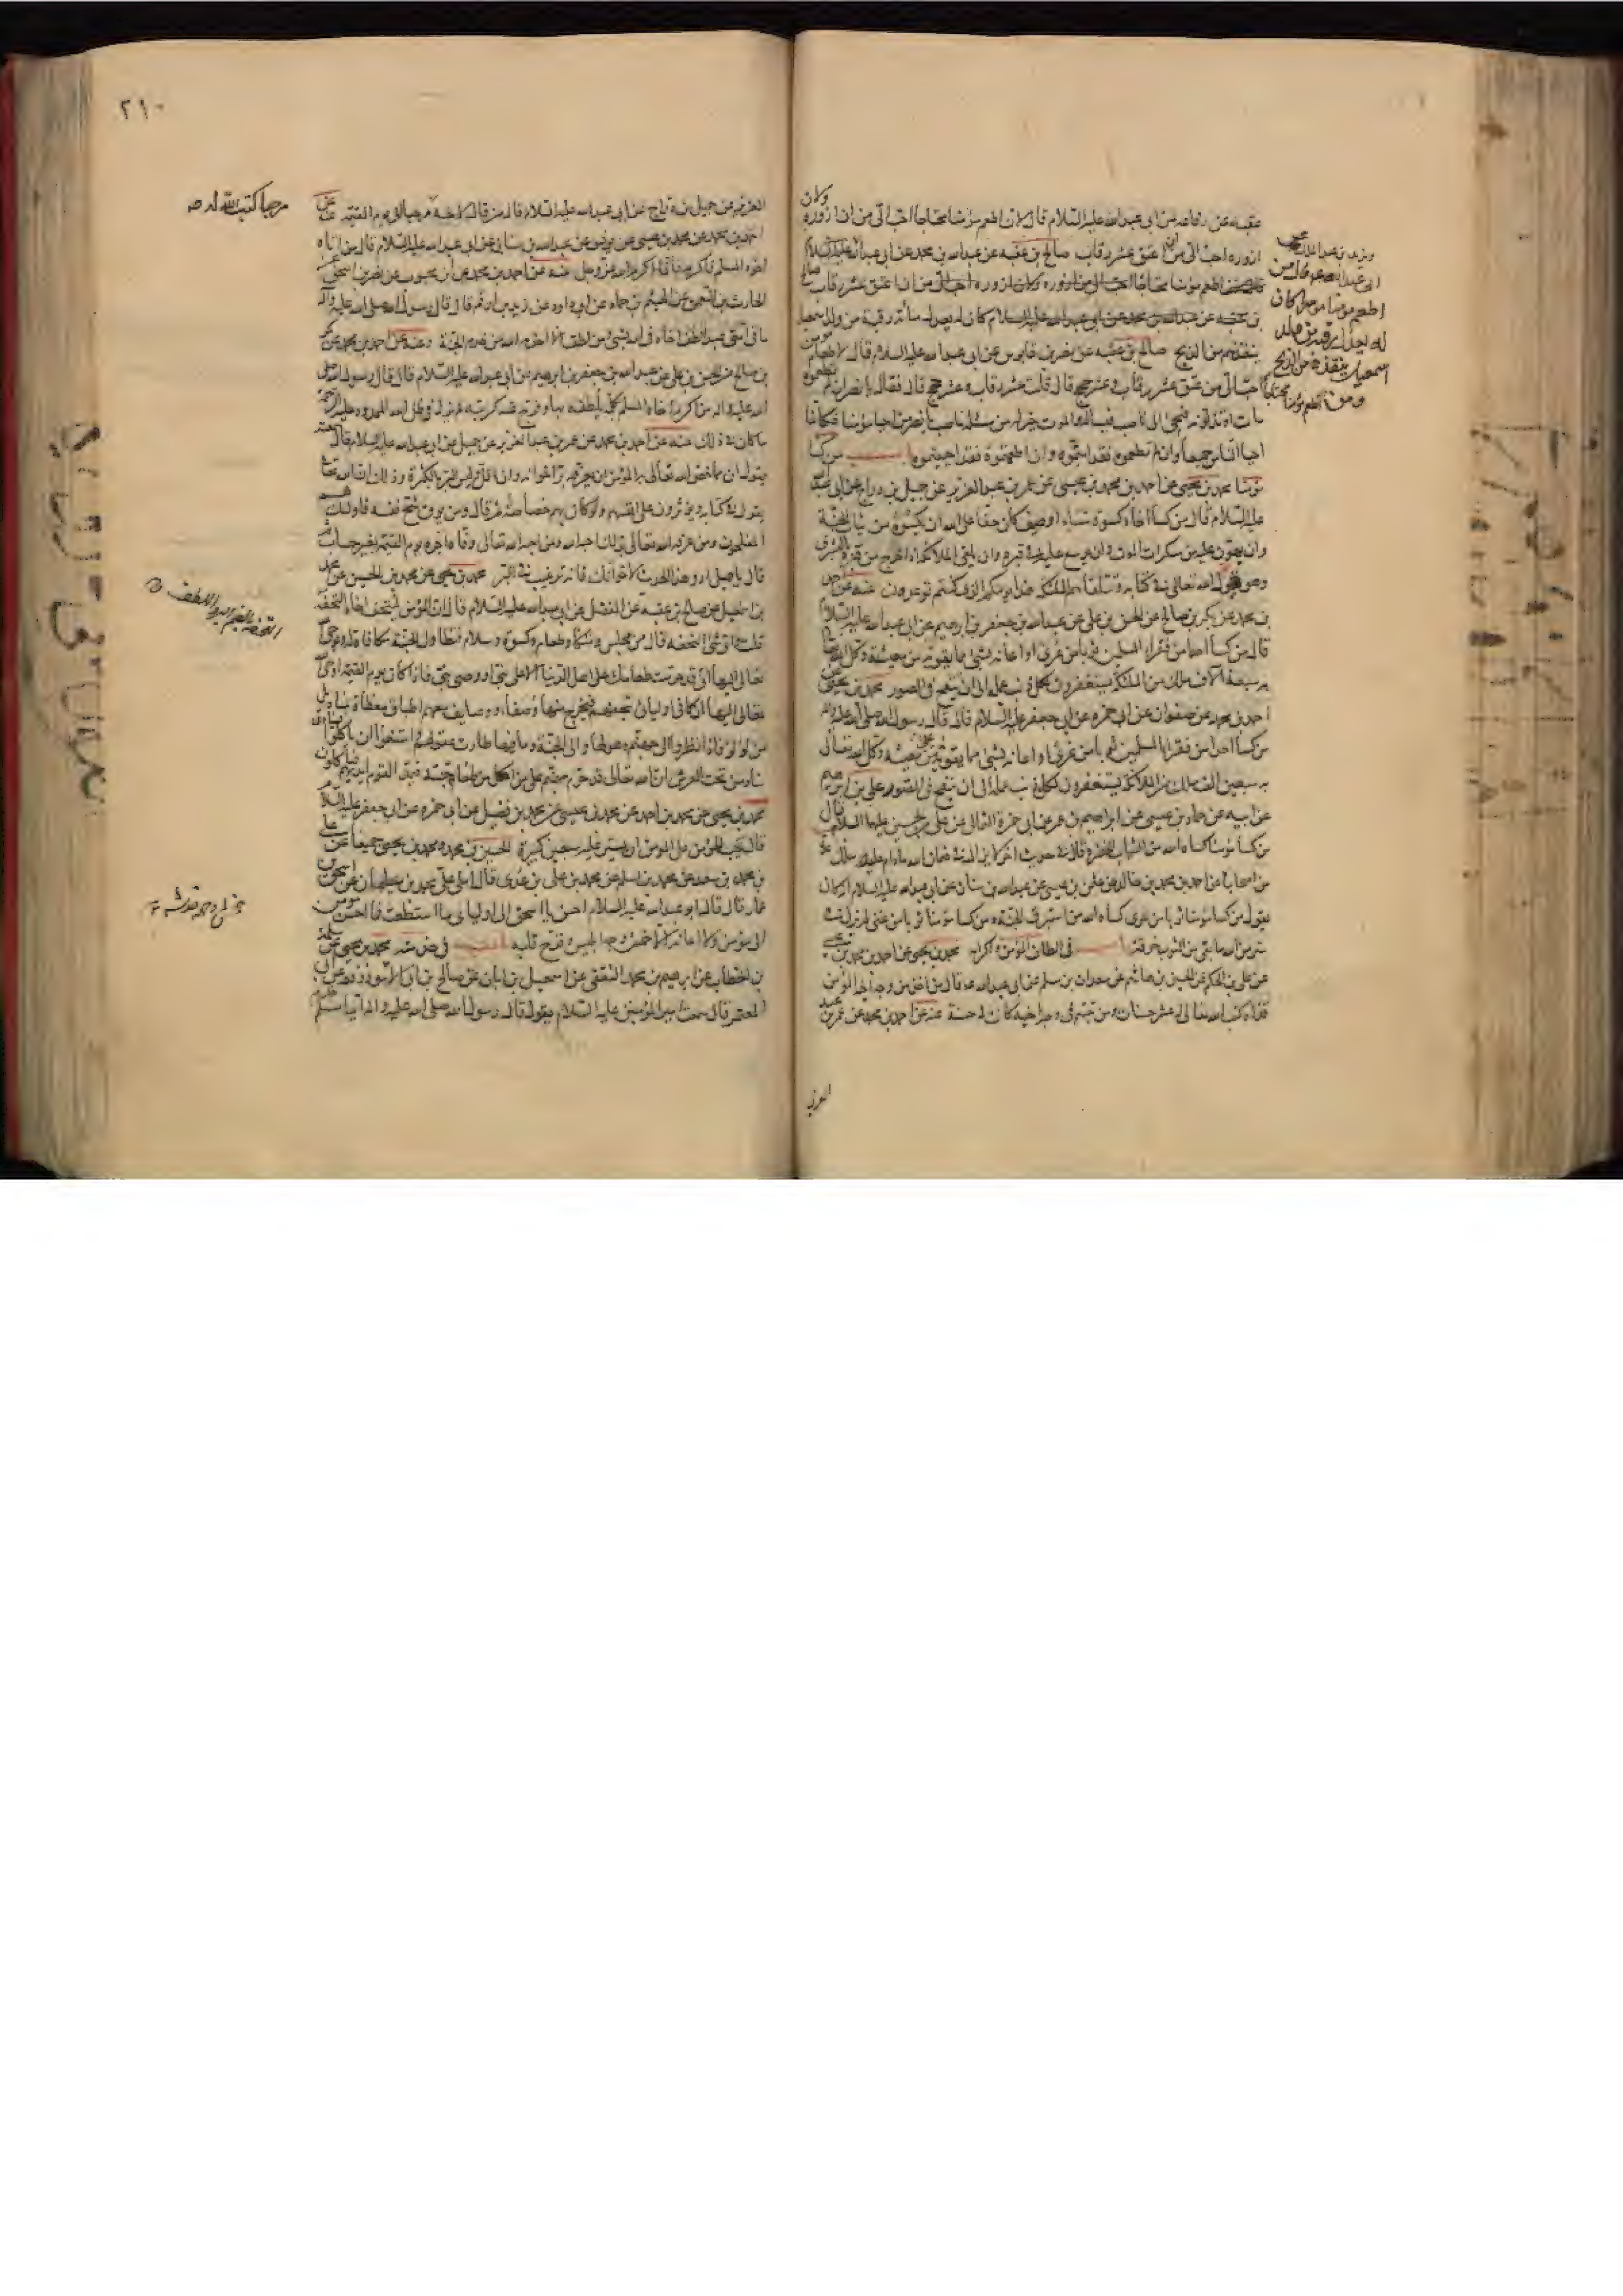 عقبة عن رفاعة عن ابى عبد الله عليه السلام قال لان اطعم مؤمنا محتاجا احب الى من ان ازوره ولان
ازوره احب الى من ان اعتق عشر رقاب صالح بن عقبة عن عبد الله بن محمد عن ابى عبد الله عليه السلام
ينقذهم من الذبح صالح بن عقبة عن نصر بن قابوس عن ابى عبد الله عليه السلام قال لاطعام مؤمن
احب الى من عتق عشر رقاب وعشر حجج قال قلت عشر رقاب وعشر حجج قال فقال يا نصر ان لم تطعموه
احيا الناس جميعا وان لم تطعموه فقد امتموه وان اطعمتموه فقد احييتموه باب من كسا
مؤمنا محمد بن يحيى عن احمد بن محمد بن عيسى عن عمر بن عبد العزيز عن جميل بن دراج عن ابى عبد الله
عليه السلام قال من كسا اخاه كسوة شتاء او صيف كان حقا على الله ان يكسوه من ثياب الجنة
وان يهون عليه من سكرات الموت وان يوسع عليه فى قبره وان يلقى الملائكة اذا خرج من قبره بالبشرى
وهو قول الله تعالى فى كتابه وتتلقاهم الملئكة هذا يومكم الذى كنتم توعدون عنه عن احمد
بن محمد عن بكر بن صالح عن الحسن بن على عن عبد الله بن جعفر بن ابرهيم عن ابى عبد الله عليه السلام
قال من كسا احدا من فقراء المسلمين ثوبا من عرى او اعانه بشئ مما يقوته من معيشة وكل الله تعالى
به سبعة آلاف ملك من الملئكة يستغفرون لكل ذنب عمله الى ان ينفخ فى الصور محمد بن يحيى عن
احمد بن محمد عن صفوان عن ابى حمزة عن ابى جعفر عليه السلام قال قال رسول الله صلى الله عليه وآله
من كسا احدا من فقراء المسلمين ثوبا من عرى او اعانه بشئ مما يقوته من معيشته وكل الله تعالى
به سبعين الف ملك من الملائكة يستغفرون لكل ذنب عمله الى ان ينفخ فى الصور على بن ابرهيم
عن ابيه عن حماد بن عيسى عن ابراهيم بن عمر عن ابى حمزة الثمالى عن على بن الحسين عليهما السلام قال
من كسا مؤمنا كساه الله من الثياب الخضر وقال فى حديث اخر لا يزال فى ضمان الله ما دام عليه سلك
من اصحابنا عن احمد بن محمد بن خالد عن عثمن بن عيسى عن عبد الله بن سنان عن ابى عبد الله عليه السلام انه كان
يقول من كسا مؤمنا ثوبا من عرى كساه الله من استبرق الجنة ومن كسا مؤمنا ثوبا من غنى لم يزل فى
ستر من الله ما بقى من الثوب خرقة باب فى الطاف المؤمن واكرامه محمد بن يحيى عن احمد بن محمد بن عيسى
عن على بن الحكم عن الحسين بن هاشم عن سعدان بن مسلم عن ابى عبد الله ع قال من اخذ من وجه اخيه المؤمن
قذاة كتب الله تعالى له عشر حسنات ومن تبسم فى وجه اخيه كانت له حسنة عنه عن احمد بن محمد عن عمر بن عبد
العزيز
٢١٠
العزيز عن جميل بن دراج عن ابى عبد الله عليه السلام قال من قال لاخيه مرحبا الى يوم القيمة عنه عن
مرحبا كتب الله له
احمد بن محمد بن عيسى عن يونس عن عبد الله بن سنان عن ابى عبد الله عليه السلام قال من اتاه
اخوه المسلم فاكرمه فانما اكرم الله عز وجل عنه عن احمد بن محمد عن بن محبوب عن نصر بن اسحق عن
الحارث بن النعمن عن الهيثم بن حماد عن ابى داود عن زيد بن ارقم قال قال رسول الله صلى الله عليه وآله
ما فى امتى عبد الطف اخاه فى الله بشئ من لطف الا اخدمه الله من خدم الجنة وعنه عن احمد بن محمد عن بكر
بن صالح عن الحسن بن على عن عبد الله بن جعفر بن ابرهيم عن ابى عبد الله عليه السلام قال قال رسول الله صلى
الله عليه واله من اكرم اخاه المسلم بكلمة يلطفه بها وفرج عنه كربته لم يزل فى ظل الله الممدود عليه الرحمة
ما كان فى ذلك عنه عن احمد بن محمد عن عمر بن عبد العزيز عن جميل عن ابى عبد الله عليه السلام قال سمعته
يقول ان مما خص الله تعالى به المؤمن ان يعرفه بر اخوانه وان قل وليس البر بالكثرة وذلك ان الله تعالى
يقول فى كتابه ويؤثرون على انفسهم ولو كان بهم خصاصة ثم قال ومن يوق شح نفسه فاولئك هم
المفلحون ومن عرفه الله تعالى بذلك احبه الله ومن احبه الله تعالى وفاه اجره يوم القيمة بغير حساب ثم
قال يا جميل ارو هذا الحديث لاخوانك فانه ترغيب فى البر محمد بن يحيى عن محمد بن الحسين عن محمد
بن اسمعيل عن صالح بن عقبة عن المفضل عن ابى عبد الله عليه السلام قال ان المؤمن ليتحف اخاه التحفة
قلت واى شئ التحفة قال من مجلس ومتكأ وطعام وكسوة وسلام فتطاول الجنة مكافاة له ويوحى الله
تعالى اليها انى قد حرمت طعامك على اهل الدنيا الا على نبى او وصى نبى فاذا كان يوم القيمة اوحى الله
تعالى اليها ان كافى اوليائى بتحفهم فيخرج منها وصفاء ووصايف معهم اطباق مغطاة بمناديل
من لؤلؤ فاذا نظروا الى جهنم وهولها والى الجنة وما فيها طارت عقولهم وامتنعوا ان ياكلوا فينادى
مناد من تحت العرش ان الله تعالى قد حرم جهنم على من اكل من طعام جنته فيمد القوم ايديهم فياكلون
محمد بن يحيى عن محمد بن احمد عن محمد بن عيسى عن محمد بن فضيل عن ابى حمزة عن ابى جعفر عليه السلام
قال يجب للمؤمن على المؤمن ان يستر عليه سبعين كبيرة الحسين بن محمد ومحمد بن يحيى جميعا عن على
بن محمد بن سعد عن محمد بن اسلم عن محمد بن على بن عدى قال املى على محمد بن سليمان عن اسحق بن
عمار قال قال ابو عبد الله عليه السلام احسن يا اسحق الى اوليائى ما استطعت فما احسن مؤمن
الى مؤمن ولا اعانه الا خمش وجه ابليس وقرح قلبه باب فى خدمته محمد بن يحيى عن سلمة
بن الخطاب عن ابرهيم بن محمد الثقفى عن اسمعيل بن ابان عن صالح بن ابى الاسود رفعه عن ابى
المعتمر قال سمعت امير المؤمنين عليه السلام يقول قال رسول الله صلى الله عليه واله ايما مسلم